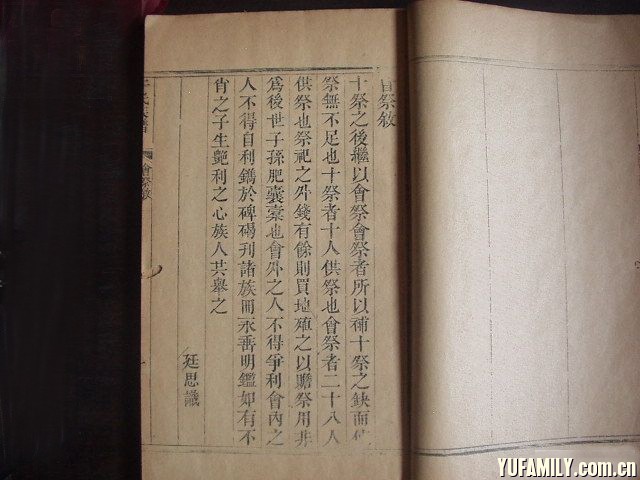 會祭敘
十祭之後繼以會祭會祭者所以補十祭之缺而使
祭無不足也十祭者十人供祭也會祭者二十八人
供祭也祭祀之外錢有餘則買地殖之以贍祭用非
爲後世子孫肥囊橐也會外之人不得爭利會內之
人不得自利鐫於碑碣刊諸族冊永垂明鑑如有不
肖之子生艷利之心族人共舉之
廷思識
氏族譜
會祭敘
YUFAMILY.com.cn